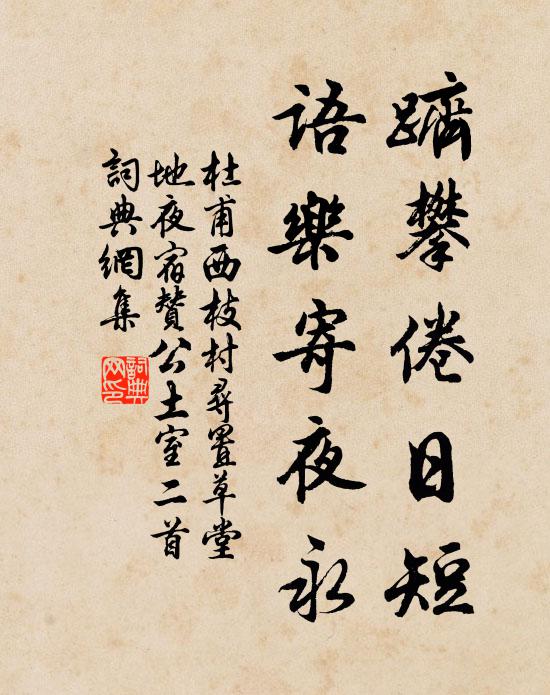 躋攀倦日短
語樂寄夜永
杜甫西枝村尋置草堂
地夜宿贊公土室二首
詞典網集
詞典
网印